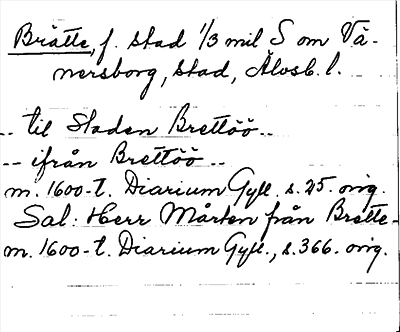 Brätte, f. stad 1/3 mil S om Vä-
nersborg, stad, Älvsb. l.
.. til Staden Brettöö ..
-- ifrån Brettöö ..
m. 1600-t. Diarium Gyll. s. 25. orig.
Sal: Herr Mårten från Brette-
m. 1600-t. Diarium Gyll., s. 366. orig.